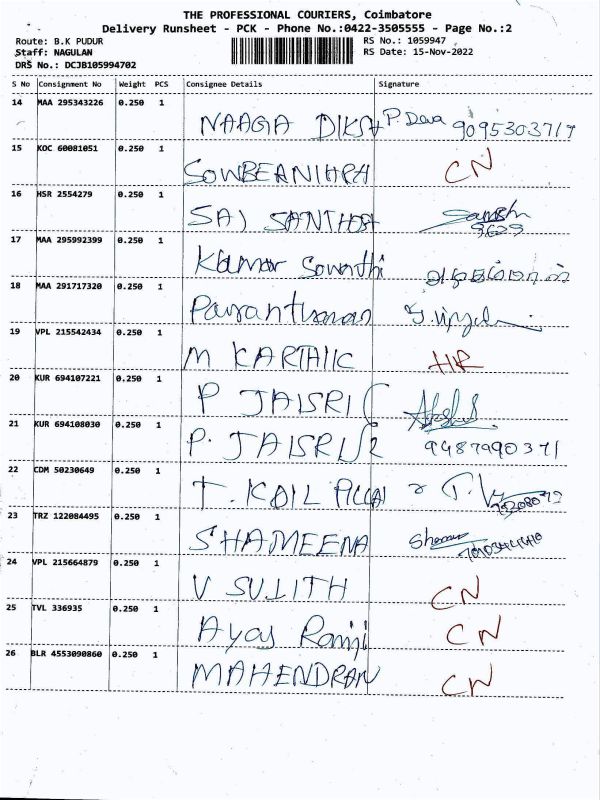 THE PROFESSIONAL COURIERS, Coimbatore
Delivery Runsheet - PCK - Phone No.:0422-3505555 - Page No.:2
Route: B.K PUDUR RS No.: 1059947
Staff: NAGULAN RS Date: 15-Nov-2022
DRS No.: DCJB105994702
S No Consignment No Weight PCS Consignee Details Signature
14 MAA 295343226 0.250 1 NAAGA DIKSH P. Deva 9095303717
15 KOC 60081051 0.250 1 SOWBEANIHPA CN
16 HSR 2554279 0.250 1 SAI SANTHOSH
17 MAA 295992399 0.250 1 Kumar Sowndhi
18 MAA 291717320 0.250 1 Paranthaman
19 VPL 215542434 0.250 1 M KARTHIC HR
20 KUR 694107221 0.250 1 P JAISRI
21 KUR 694108030 0.250 1 P. JAISRI 9487990371
22 CDM 50230649 0.250 1 T. KOIL PILLAI
23 TRZ 122084495 0.250 1 SHAMEENA
24 VPL 215664879 0.250 1 V SUJITH CN
25 TVL 336935 0.250 1 Ayas Ramji CN
26 BLR 4553090860 0.250 1 MAHENDRAN CN